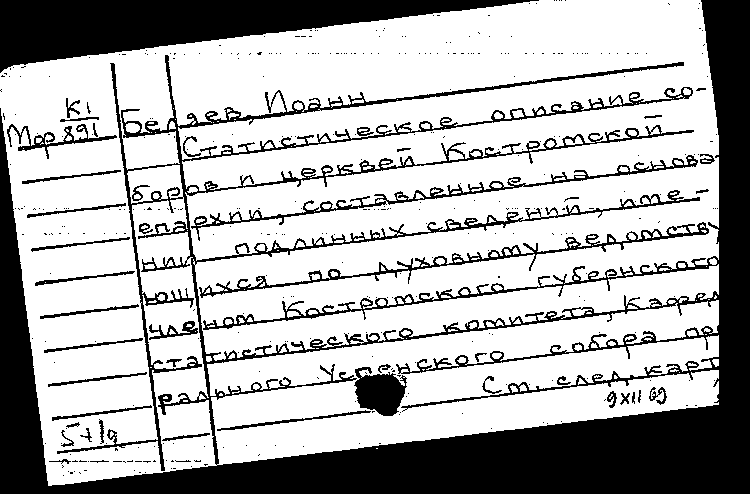 К1
Мор 891
Беляев, Иоанн
Статистическое описание со-
боров и церквей Костромской
епархии, составленное на основа-
нии подлинных сведений, име-
ющихся по духовному ведомству
членом Костромского губернского
статистического комитета, Кафед
рального Успенского собора пр
См. след. карт
9 XII 69